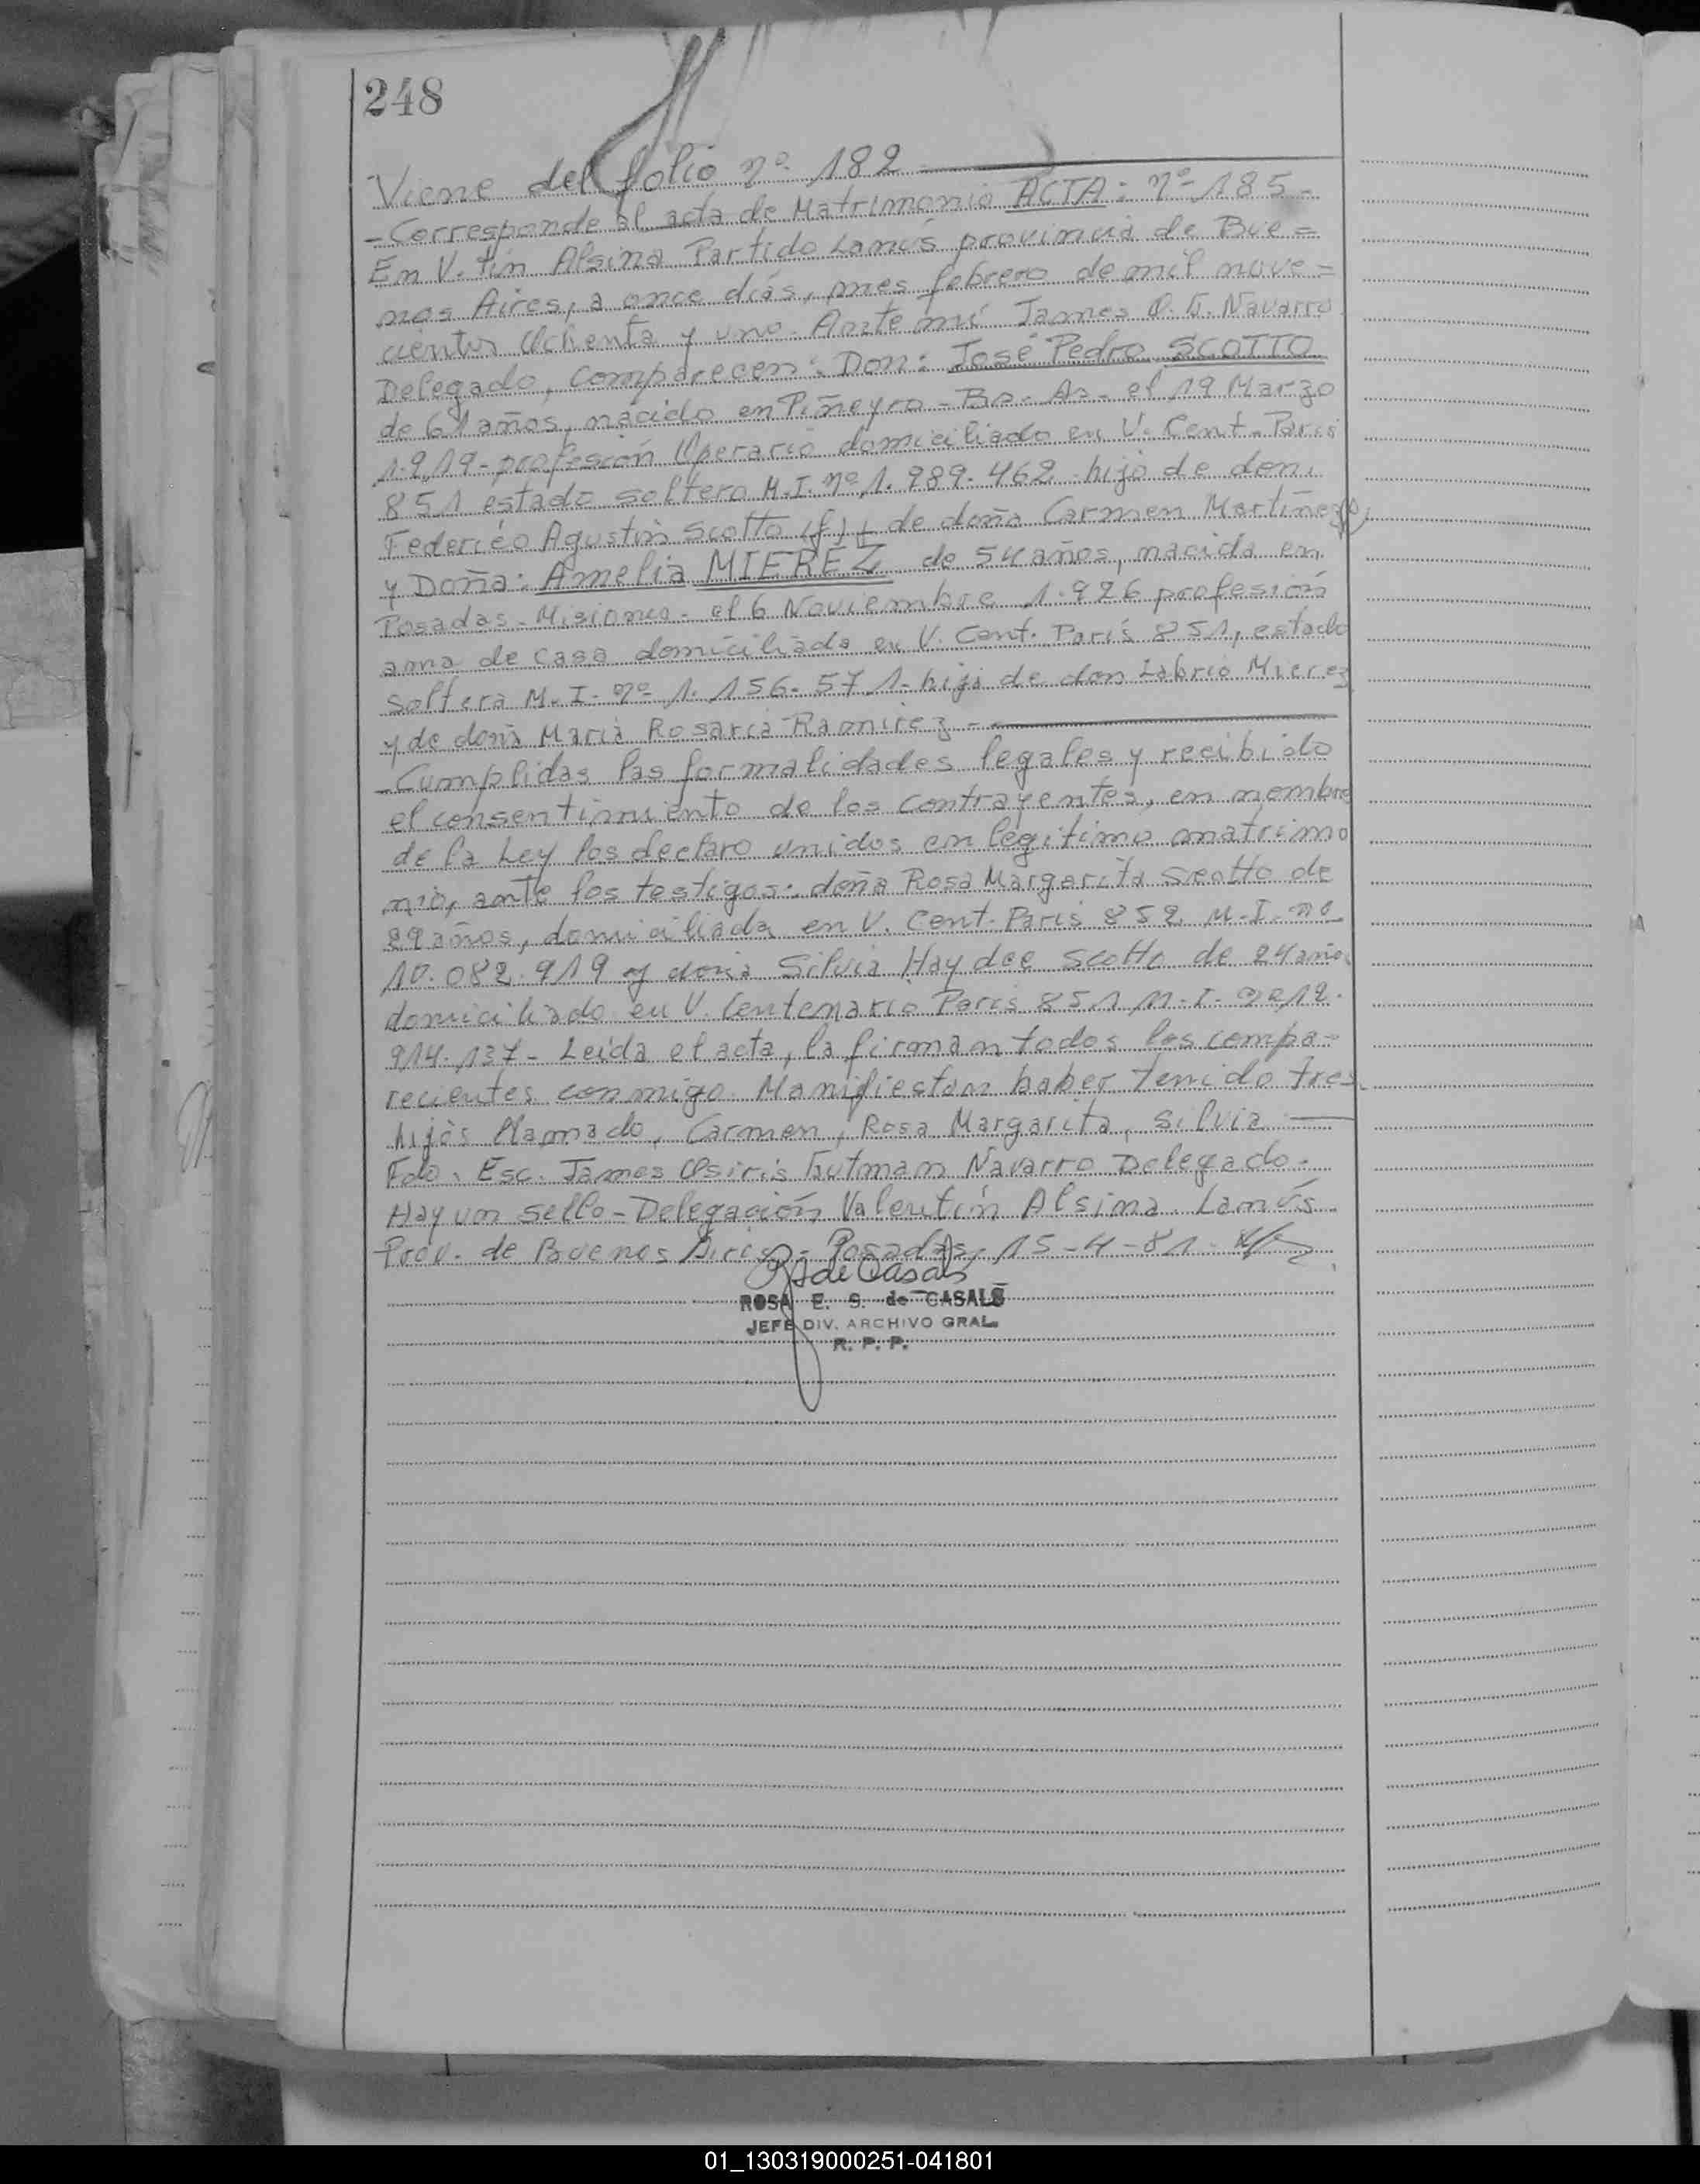 248
Viene del folio nº 182
- Corresponde al acta de Matrimonio ACTA: nº 185-
En V. tin Alsina Partido Lanús provincia de Bue=
nos Aires, a once días, mes febrero de mil nove=
cientos Ochenta y uno. Ante mí James O. G. Navarro
Delegado, comparecen: Don: José Pedro SCOTTO
de 61 años, nacido en Piñeyro - Bs. As - el 19 Marzo
1.919 - profesión Operario domiciliado en V. Cent. Paris
851 estado soltero M.I. nº 1.989.462 hijo de don:
Federico Agustin Scotto (f) y de doña Carmen Martinez
y Doña: Amelia MIEREZ de 54 años, nacida en
Posadas - Misiones - el 6 Noviembre 1.926 profesión
ama de casa domiciliada en V. Cent. París 851, estado
soltera M.I. nº 1.156.571 - hija de don Labrio Mierez
y de doña María Rosaria Ramirez -
- Cumplidas las formalidades legales y recibido
el consentimiento de los contrayentes, en nombre
de la Ley los declaro unidos en legítimo matrimo
nio, ante los testigos: doña Rosa Margarita Scotto de
29 años, domiciliada en V. Cent. Paris 852 M.I. nº
10.082.919 y doña Silvia Haydee Scotto de 24 años
domiciliado en V. Centenario Paris 851 M.I. nº 12.
914.137 - Leída el acta, la firman todos los compa-
recientes conmigo. Manifiestan haber tenido tres
hijos llamado, Carmen, Rosa Margarita, Silvia
Fdo. Esc. James Osiris Gutman Navarro Delegado.
Hay un sello - Delegación Valentín Alsina. Lanús
Prov. de Buenos Aires - Posadas, 15-4-81.
R de Casals
ROSA E. S. de CASALS
JEFE DIV. ARCHIVO GRAL.
R. P. P.
01_130319000251-041801